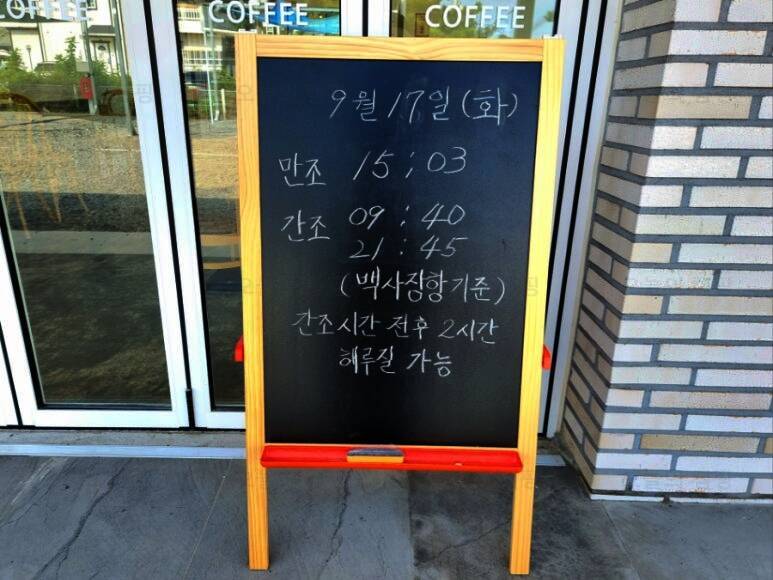 COFFEE COFFEE COFFEE
9월 17일 (화)
만조 15 : 03
간조 09 : 40
21 : 45
(백사장항 기준)
간조시간 전후 2시간
해루질 가능